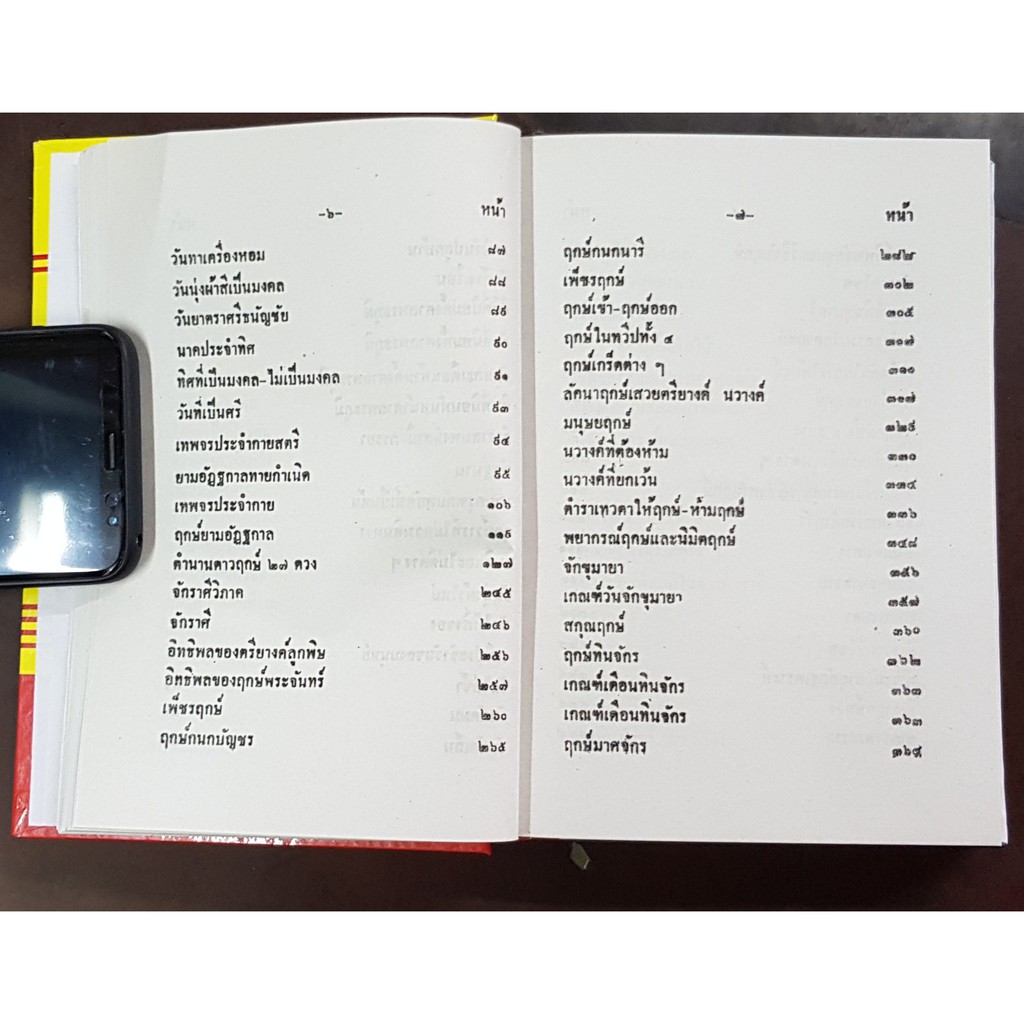 -๖- หน้า
วันทาเครื่องหอม ๘๗
วันนุ่งผ้าสีเป็นมงคล ๘๘
วันยาตราศรีธนัญชัย ๘๙
นาคประจำทิศ ๙๐
ทิศที่เป็นมงคล-ไม่เป็นมงคล ๙๑
วันที่เป็นศรี ๙๓
เทพจรประจำกายสตรี ๙๔
ยามอัฏฐกาลทายกำเนิด ๙๕
เทพจรประจำกาย ๑๐๖
ฤกษ์ยามอัฏฐกาล ๑๑๙
ตำนานดาวฤกษ์ ๒๗ ดวง ๑๒๗
จักราศีวิภาค ๒๔๕
จักราศี ๒๔๖
อิทธิพลของตรียางค์ลูกพิษ ๒๕๖
อิทธิพลของฤกษ์พระจันทร์ ๒๕๗
เพ็ชรฤกษ์ ๒๖๐
ฤกษ์กนกบัญชร ๒๖๕
หน้า
ฤกษ์กนกนารี
เพ็ชรฤกษ์ ๓๐๒
ฤกษ์เข้า-ฤกษ์ออก ๓๐๕
ฤกษ์ในทวีปทั้ง ๔
ฤกษ์เกร็ดต่าง ๆ
ลัคนาฤกษ์เสวยตรียางค์ นวางค์ ๓๑๗
มนุษยฤกษ์
นวางค์ที่ต้องห้าม ๓๓๐
นวางค์ที่ยกเว้น ๓๓๔
ตำราเทวดาให้ฤกษ์-ห้ามฤกษ์ ๓๓๖
พยากรณ์ฤกษ์และนิมิตฤกษ์ ๓๔๘
จักขุมายา ๓๕๖
เกณฑ์วันจักขุมายา ๓๕๗
สกุณฤกษ์ ๓๖๐
ฤกษ์ทินจักร ๓๖๒
เกณฑ์เดือนทินจักร ๓๖๓
เกณฑ์เดือนทินจักร ๓๖๓
ฤกษ์มาศจักร ๓๖๙